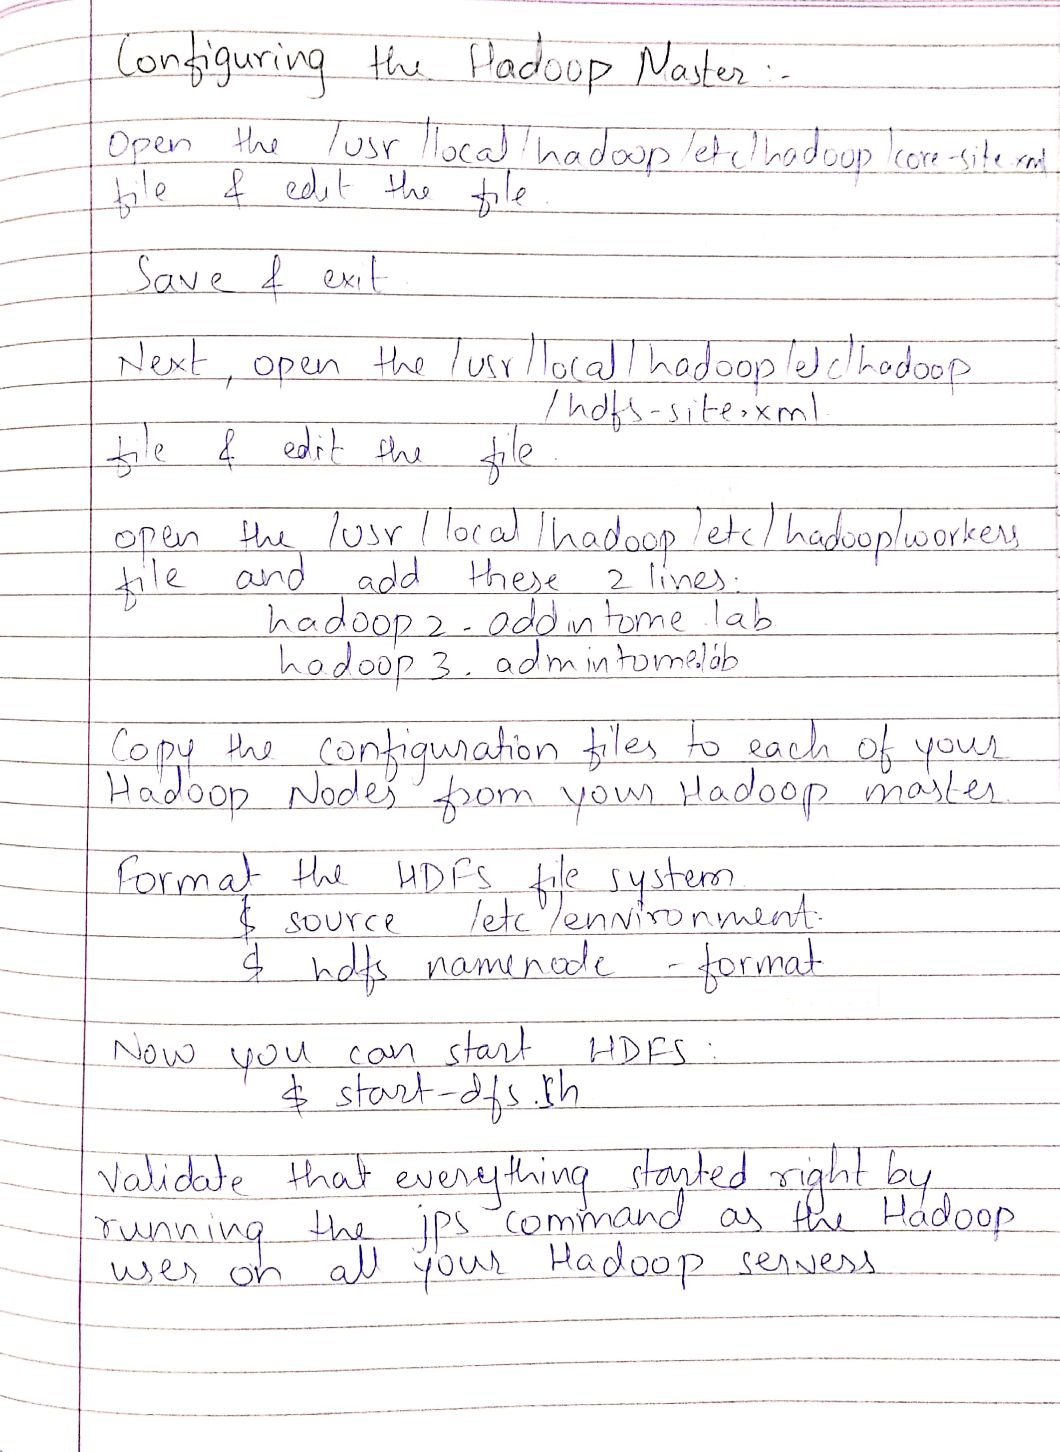 Configuring the Hadoop Master :-
Open the /usr/local/hadoop/etc/hadoop/core-site.xml
file & edit the file.
Save & exit.
Next, open the /usr/local/hadoop/etc/hadoop
/hdfs-site.xml
file & edit the file.
open the /usr/local/hadoop/etc/hadoop/workers
file and add these 2 lines:
hadoop2.addintome.lab
hadoop3.admintome.lab
Copy the configuration files to each of your
Hadoop Nodes from your Hadoop master.
Format the HDFS file system
$ source /etc/environment.
$ hdfs namenode -format
Now you can start HDFS :
$ start-dfs.sh
Validate that everything started right by
running the jps command as the Hadoop
user on all your Hadoop servers